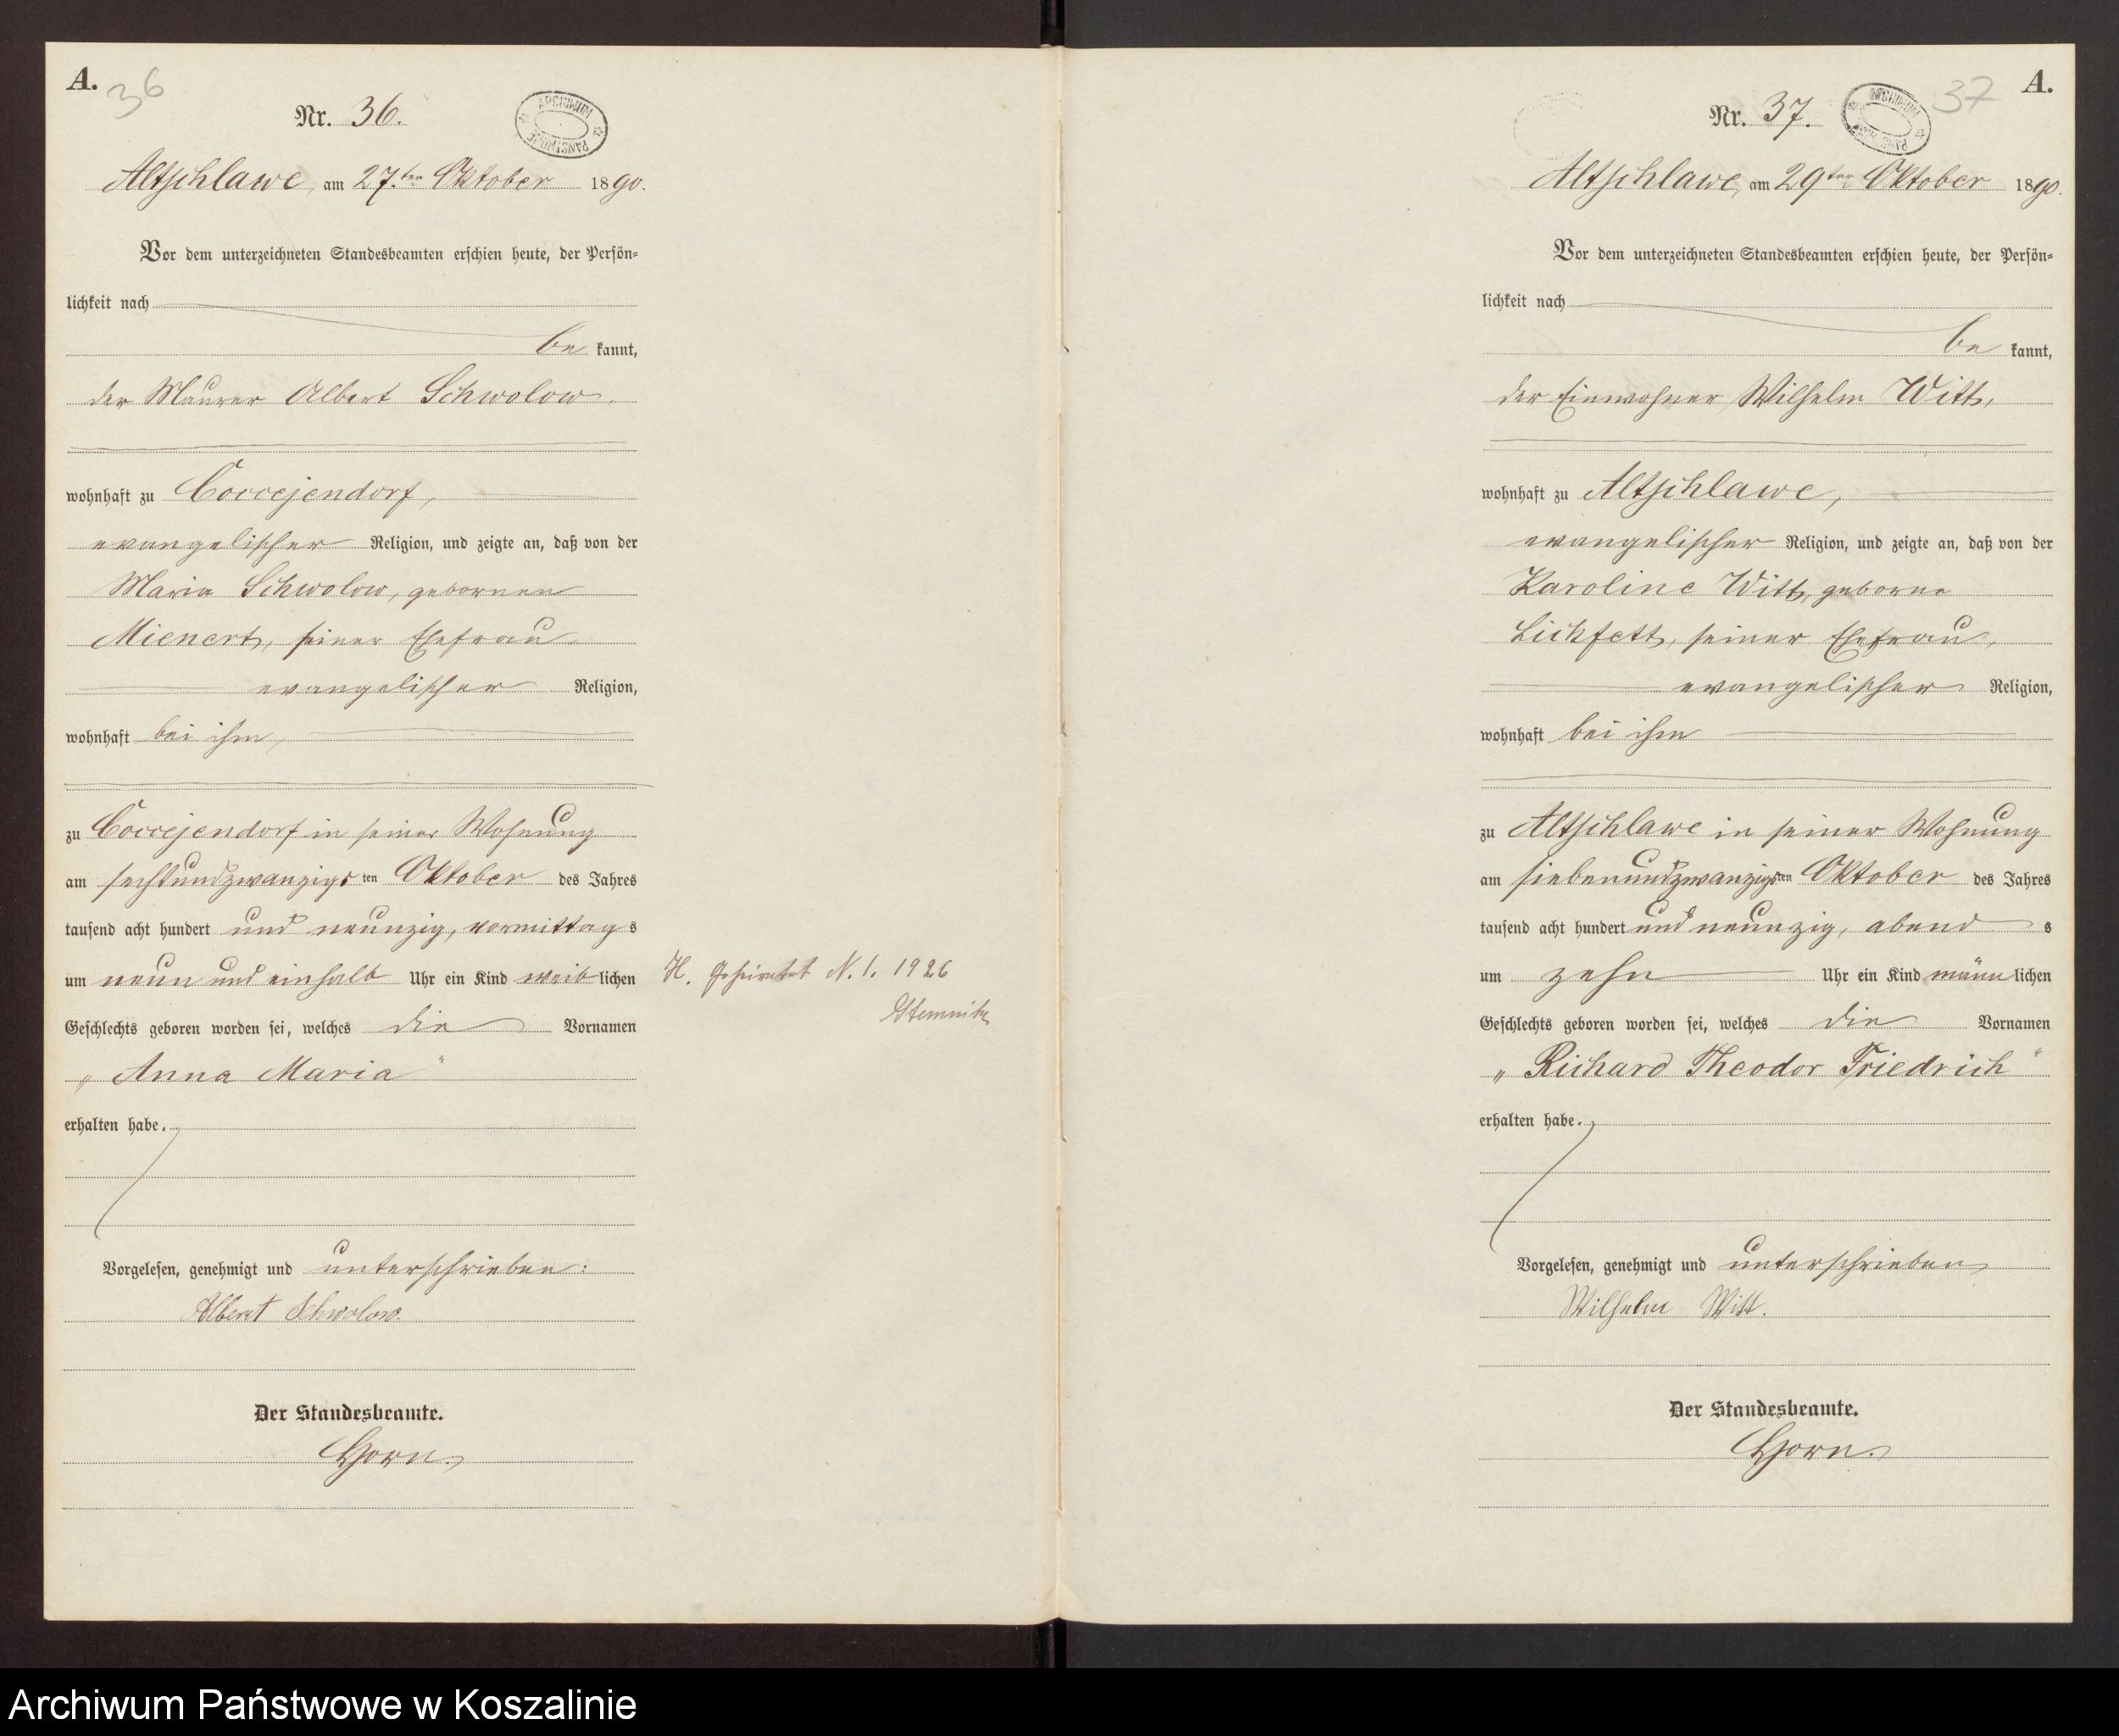 A.
36
Nr. 36.
ARCHIWUM PAŃSTWOWE
Altschlawe, am 27.ten Oktober 1890.
Vor dem unterzeichneten Standesbeamten erschien heute, der Persön-
lichkeit nach
be kannt,
der Maurer Albert Schwolow,
wohnhaft zu Coccejendorf,
evangelischer Religion, und zeigte an, daß von der
Maria Schwolow, gebornen
Mienert, seiner Ehefrau
evangelischer Religion,
wohnhaft bei ihm,
zu Coccejendorf in seiner Wohnung
am sechsundzwanzigsten Oktober des Jahres
tausend acht hundert und neunzig, vormittags
um neun und einhalb Uhr ein Kind weiblichen
Geschlechts geboren worden sei, welches die Vornamen
„Anna Maria“
erhalten habe.
Vorgelesen, genehmigt und unterschrieben:
Albert Schwolow.
Der Standesbeamte.
Horn.
H. geheiratet N. 1. 1926
Stemnitz
A.
37
Nr. 37.
ARCHIWUM PAŃSTWOWE
Altschlawe, am 29ten Oktober 1890.
Vor dem unterzeichneten Standesbeamten erschien heute, der Persön-
lichkeit nach
be kannt,
der Einwohner Wilhelm Witt,
wohnhaft zu Altschlawe,
evangelischer Religion, und zeigte an, daß von der
Karoline Witt, geborne
Lickfett, seiner Ehefrau,
evangelischer Religion,
wohnhaft bei ihm
zu Altschlawe in seiner Wohnung
am siebenundzwanzigsten Oktober des Jahres
tausend acht hundert und neunzig, abends
um zehn Uhr ein Kind männlichen
Geschlechts geboren worden sei, welches die Vornamen
„Richard Theodor Friedrich“
erhalten habe.
Vorgelesen, genehmigt und unterschrieben
Wilhelm Witt.
Der Standesbeamte.
Horn.
Archiwum Państwowe w Koszalinie